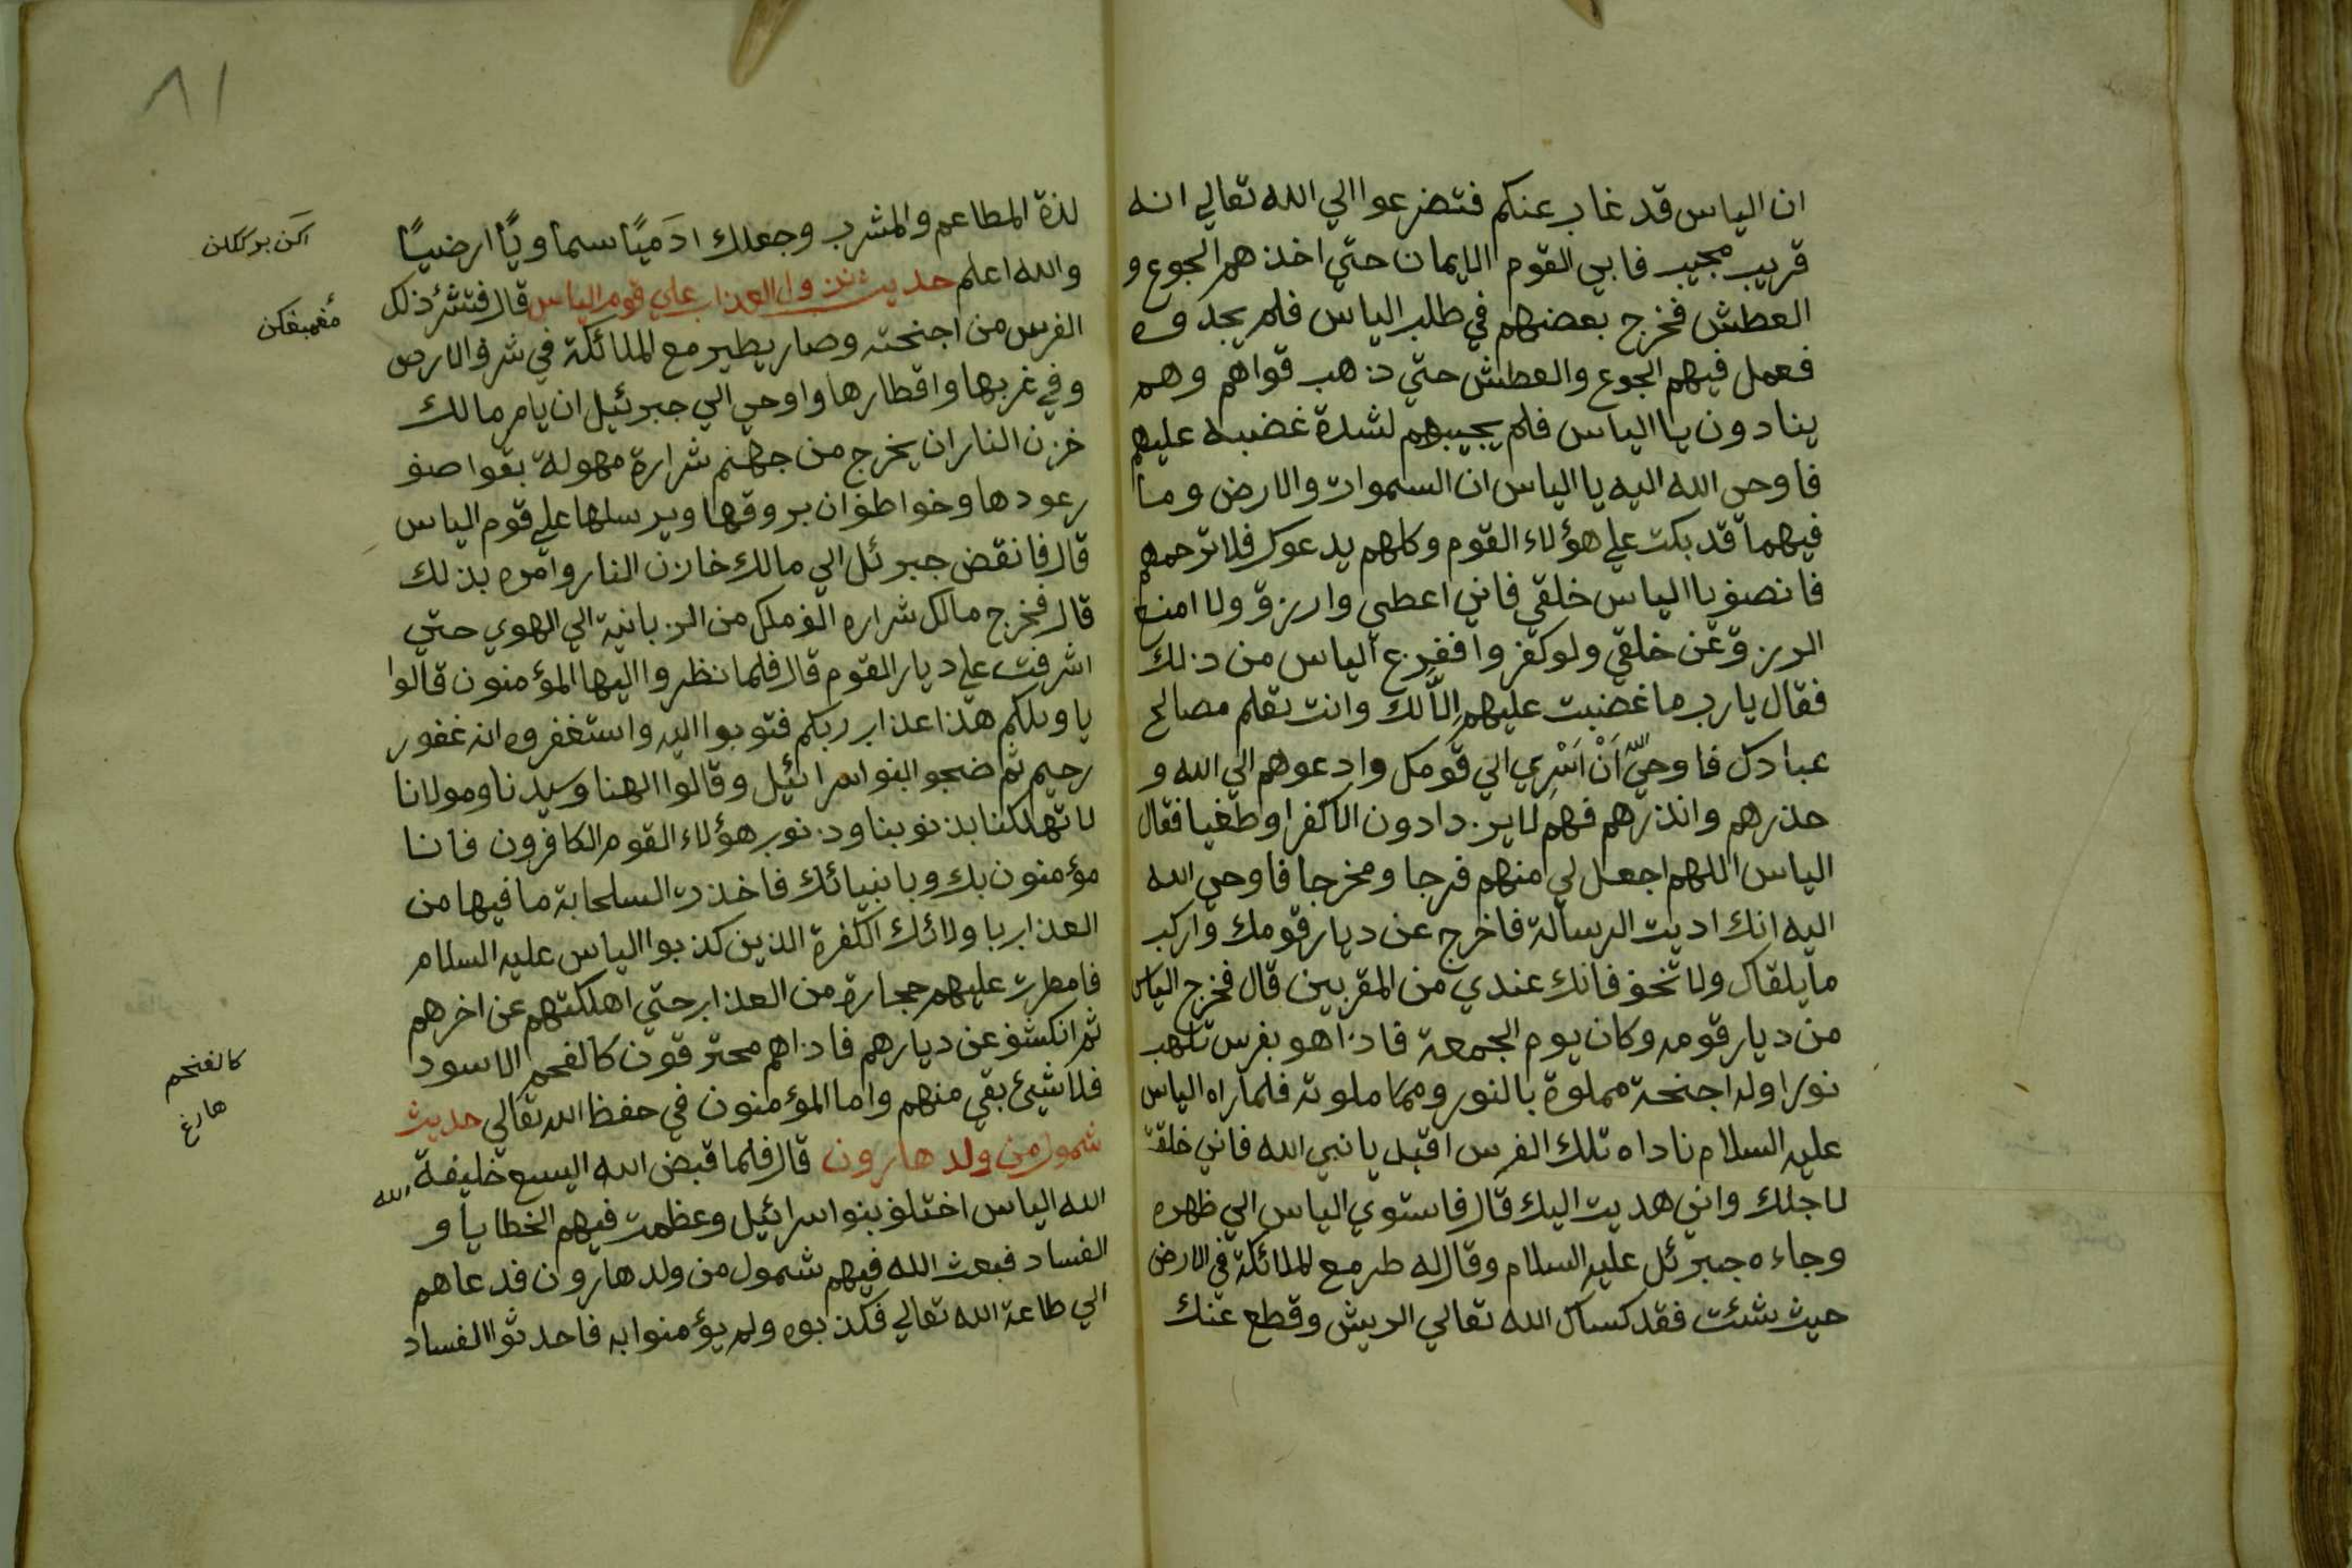 ان الياس قد غاب عنكم فتضرعوا الي الله تعالي انه
قريب مجيب فابي القوم الايمان حتي اخذهم الجوع و
العطش فخرج بعضهم في طلب الياس فلم يجدوه
فعمل فيهم الجوع والعطش حتي ذهب قواهم وهم
ينادون يا الياس فلم يجيبهم لشدة غضبه عليهم
فاوحي الله اليه يا الياس ان السموات والارض وما
فيهما قد بكت علي هؤلاء القوم وكلهم يدعوك فلا ترحمهم
فانصف يا الياس خلقي فاني اعطي وارزق ولا امنع
الرزق عن خلقي ولو كفروا ففزع الياس من ذلك
فقال يارب ما غضبت عليهم الّا لك وانت تعلم مصالح
عبادك فاوحي الله اَنْ اَسْرِي الي قومك وادعوهم الي الله و
حذرهم وانذرهم فهم لا يزدادون الا كفرا وطغيا فقال
الياس اللهم اجعل لي منهم فرجا ومخرجا فاوحي الله
اليه انك اديت الرسالة فاخرج عن ديار قومك واركب
ما يلقاك ولا تخف فانك عندي من المقربين قال فخرج الياس
من ديار قومه وكان يوم الجمعة فاذا هو بفرس تلهب
نورا وله اجنحة مملوة بالنور ومما ملونة فلما راه الياس
عليه السلام ناداه تلك الفرس اقبل يا نبي الله فاني خلقت
لاجلك واني هديت اليك قال فاستوي الياس الي ظهره
وجاءه جبرئل عليه السلام وقال له طر مع الملائكة في الارض
حيث شئت فقد كساك الله تعالي الريش وقطع عنك
٨١
لذة المطاعم والمشرب وجعلك ادَميًا سماويًا ارضيًا
والله اعلم حديث نزول العذاب علي قوم الياس قال فتنثر ذلك
الفرس من اجنحته وصار يطير مع الملائكة في شرق الارض
وفي غربها واقطارها واوحي الي جبرئيل ان يامر مالك
خزن النار ان يخرج من جهنم شرارة مهولة بقواصف
رعودها وخواطفان بروقها ويرسلها علي قوم الياس
قال فانقض جبرئل الي مالك خازن النار وامره بذلك
قال فخرج مالك شراره الف ملك من الزبانية الي الهوي حتي
اشرفت علي ديار القوم قال فلما نظروا اليها المؤمنون قالوا
يا ويلكم هذا عذاب ربكم فتوبوا اليه واستغفروه انه غفور
رحيم ثم ضجو البنوا اسرائيل وقالوا الهنا وسيدنا ومولانا
لا تهلكنا بذنوبنا وذنوب هؤلاء القوم الكافرون فانا
مؤمنون بك وبانبيائك فاخذت السلحابة ما فيها من
العذاب باولائك الكفرة الذين كذبوا الياس عليه السلام
فامطرت عليهم حجارة من العذاب حتي اهلكتهم عن اخرهم
ثم انكشف عن ديارهم فاذاهم محترقون كالفحم الاسود
فلا شيئ بقي منهم واما المؤمنون في حفظ الله تعالي حديث
شمول من ولد هارون قال فلما قبض الله اليسع خليفة الله
الله الياس اختلف بنوا اسرائيل وعظمت فيهم الخطايا و
الفساد فبعث الله فيهم شمول من ولد هارون فدعاهم
الي طاعة الله تعالي فكذبوه ولم يؤمنوا به فاحدثوا الفساد
كالفحم
هارغ